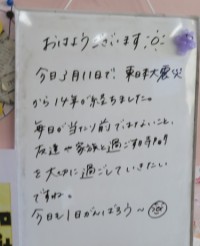 おはようございます
今日3月11日で、東日本大震災
から14年が経ちました。
毎日が当たり前ではないこと、
友達や家族と過ごす時間
を大切に過ごしていきたい
ですね。
今日も1日がんばろう〜